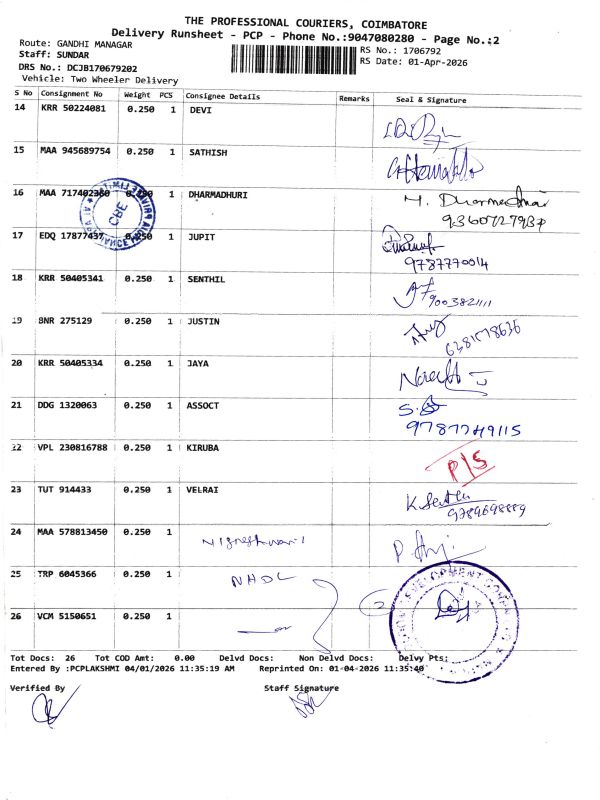 THE PROFESSIONAL COURIERS, COIMBATORE
Delivery Runsheet - PCP - Phone No.:9047080280 - Page No.:2
Route: GANDHI MANAGAR
Staff: SUNDAR
DRS No.: DCJB170679202
Vehicle: Two Wheeler Delivery
RS No.: 1706792
RS Date: 01-Apr-2026
S No Consignment No Weight PCS Consignee Details Remarks Seal & Signature
14 KRR 50224081 0.250 1 DEVI
15 MAA 945689754 0.250 1 SATHISH
16 MAA 717402380 0.250 1 DHARMADHURI
9360727937
17 EDQ 17877437 0.250 1 JUPIT
9787770014
CBE
18 KRR 50405341 0.250 1 SENTHIL
9003821111
19 BNR 275129 0.250 1 JUSTIN
6381578636
20 KRR 50405334 0.250 1 JAYA
21 DDG 1320063 0.250 1 ASSOCT
9787749115
22 VPL 230816788 0.250 1 KIRUBA
P/S
23 TUT 914433 0.250 1 VELRAI
9789698889
24 MAA 578813450 0.250 1
25 TRP 6045366 0.250 1 NHDC
2
26 VCM 5150651 0.250 1
Tot Docs: 26 Tot COD Amt: 0.00 Delvd Docs: Non Delvd Docs: Delvy Pts:
Entered By :PCPLAKSHMI 04/01/2026 11:35:19 AM Reprinted On: 01-04-2026 11:35:40
Verified By Staff Signature